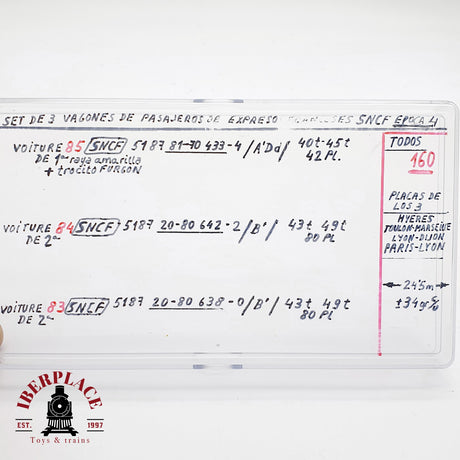 SET DE 3 VAGONES DE PASAJEROS DE EXPRESO FRANCESES SNCF EPOCA 4
VOITURE 85 SNCF 5187 81-70 433-4 /A'Dd/ 40t-45t
42 PL.
DE 1ª raya amarilla
+ trocito FURGON
VOITURE 84 SNCF 5187 20-80 642-2 /B'/ 43t 49t
DE 2ª 80 PL
VOITURE 83 SNCF 5187 20-80 638-0 /B'/ 43t 49t
DE 2ª 80 PL
TODOS
160
PLACAS DE
LOS 3
HYERES
TOULON-MARSEILLE
LYON-DIJON
PARIS-LYON
24'5m
±34gr
IBERPLACE
EST. 1997
Toys & trains